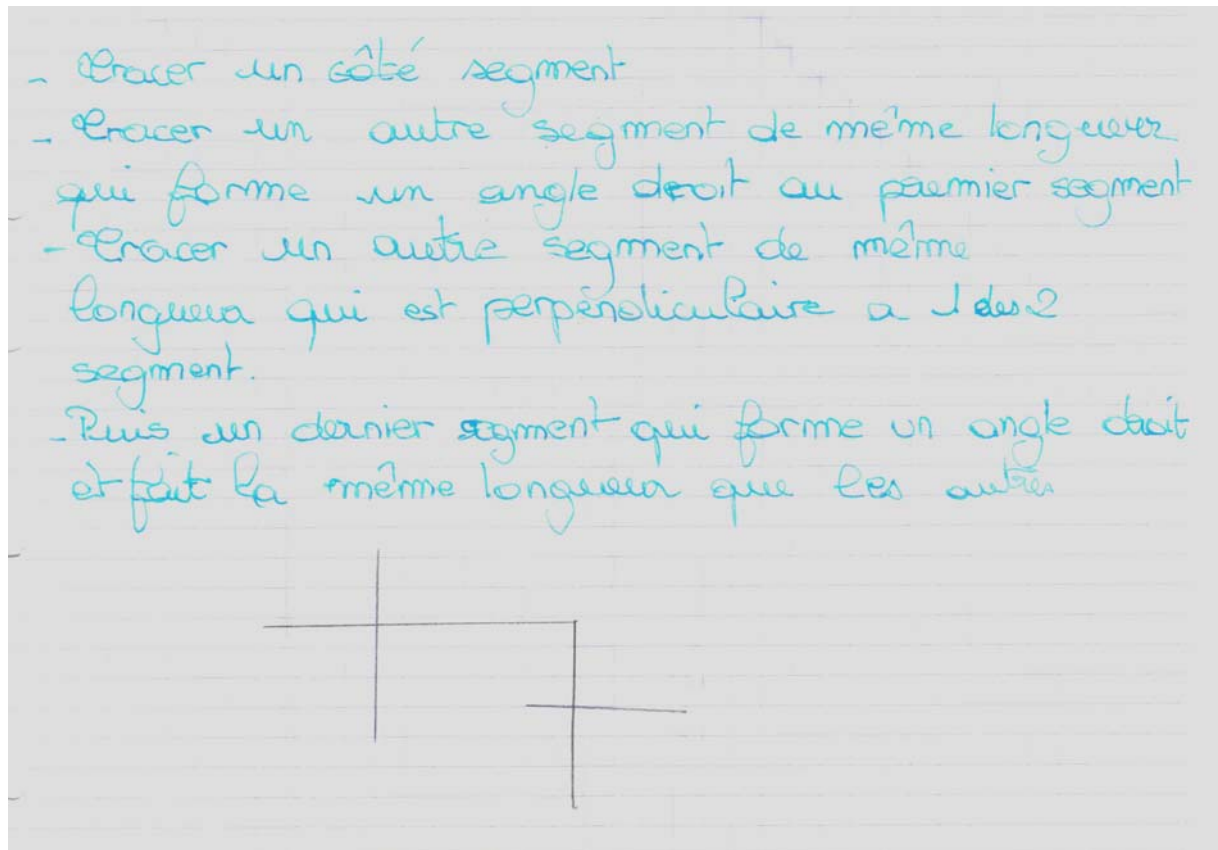 - Tracer un côté segment
- Tracer un autre segment de même longueur
qui forme un angle droit au premier segment
- Tracer un autre segment de même
longueur qui est perpendiculaire a 1 des 2
segment.
- Puis un dernier segment qui forme un angle droit
et fait la même longueur que les autres